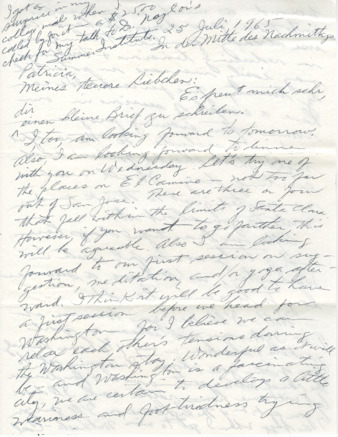 I got a
surprise in my
college mail when I
called for it - a $25.00
check for my talk to Dr.
Summer Institute.
25 Juli, 1965
In der Mitte des Nachmittags
Patricia,
Meines theure Liebchen:
Es freut mich sehr,
dir
einen kleine Brief zu schreiben.
I, too am looking forward to tomorrow.
Also I am looking forward to dinner
with you on Wednesday. Let's try one of
the places on El Camino - not too far
out of San Jose. There are three or four
that fall within the limits of Santa Clara.
However if you want to go farther this
will be agreeable. Also I am looking
forward to our first session on sug-
gestion, meditation, and/or yoga after-
ward. I think it will be good to have
a first session before we head for
Washington for I believe we can
relax each other's tensions during
the Washington stay. Wonderful as it will
be - and Washington is a fascinating
city, we are certain to develop a little
weariness and footiredness trying